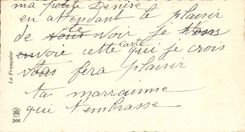 ma petite Denise
en attendant le plaisir
de te voir je
envoie cette carte que je crois
vous fera plaisir
ta marraine
qui t'embrasse
La Française